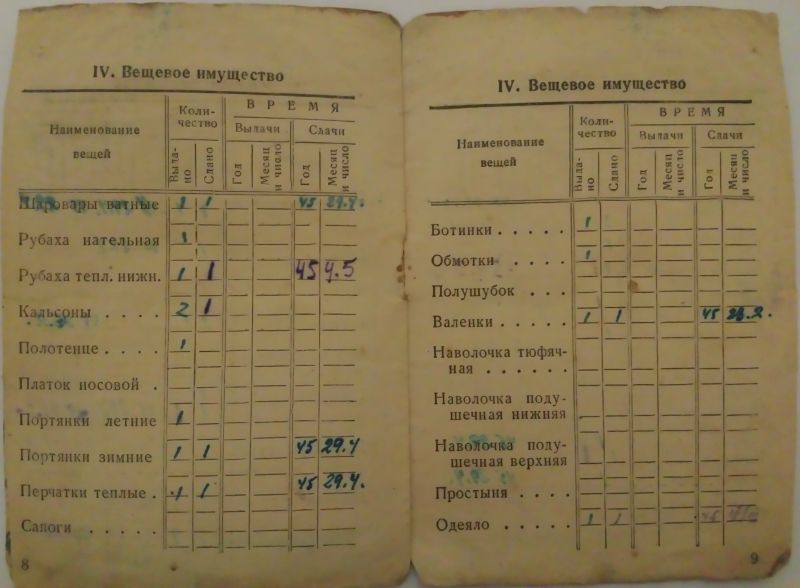 IV. Вещевое имущество
Наименование вещей
Количество
ВРЕМЯ
Выдачи
Сдачи
Выдано
Сдано
Год
Месяц и число
Год
Месяц и число
Шаровары ватные 1 1 45 29.4.
Рубаха нательная 1
Рубаха тепл. нижн. 1 1 45 4.5
Кальсоны . . . . 2 1
Полотенце . . . . 1
Платок носовой .
Портянки летние 1
Портянки зимние 1 1 45 29.4
Перчатки теплые . 1 1 45 29.4.
Сапоги . . . . .
8
IV. Вещевое имущество
Наименование вещей
Количество
ВРЕМЯ
Выдачи
Сдачи
Выдано
Сдано
Год
Месяц и число
Год
Месяц и число
Ботинки . . . . . 1
Обмотки . . . . 1
Полушубок . . .
Валенки . . . . . 1 1 45
Наволочка тюфяч-
ная . . . . . .
Наволочка поду-
шечная нижняя
Наволочка поду-
шечная верхняя
Простыня . . . .
Одеяло . . . . . 1 1 45
9